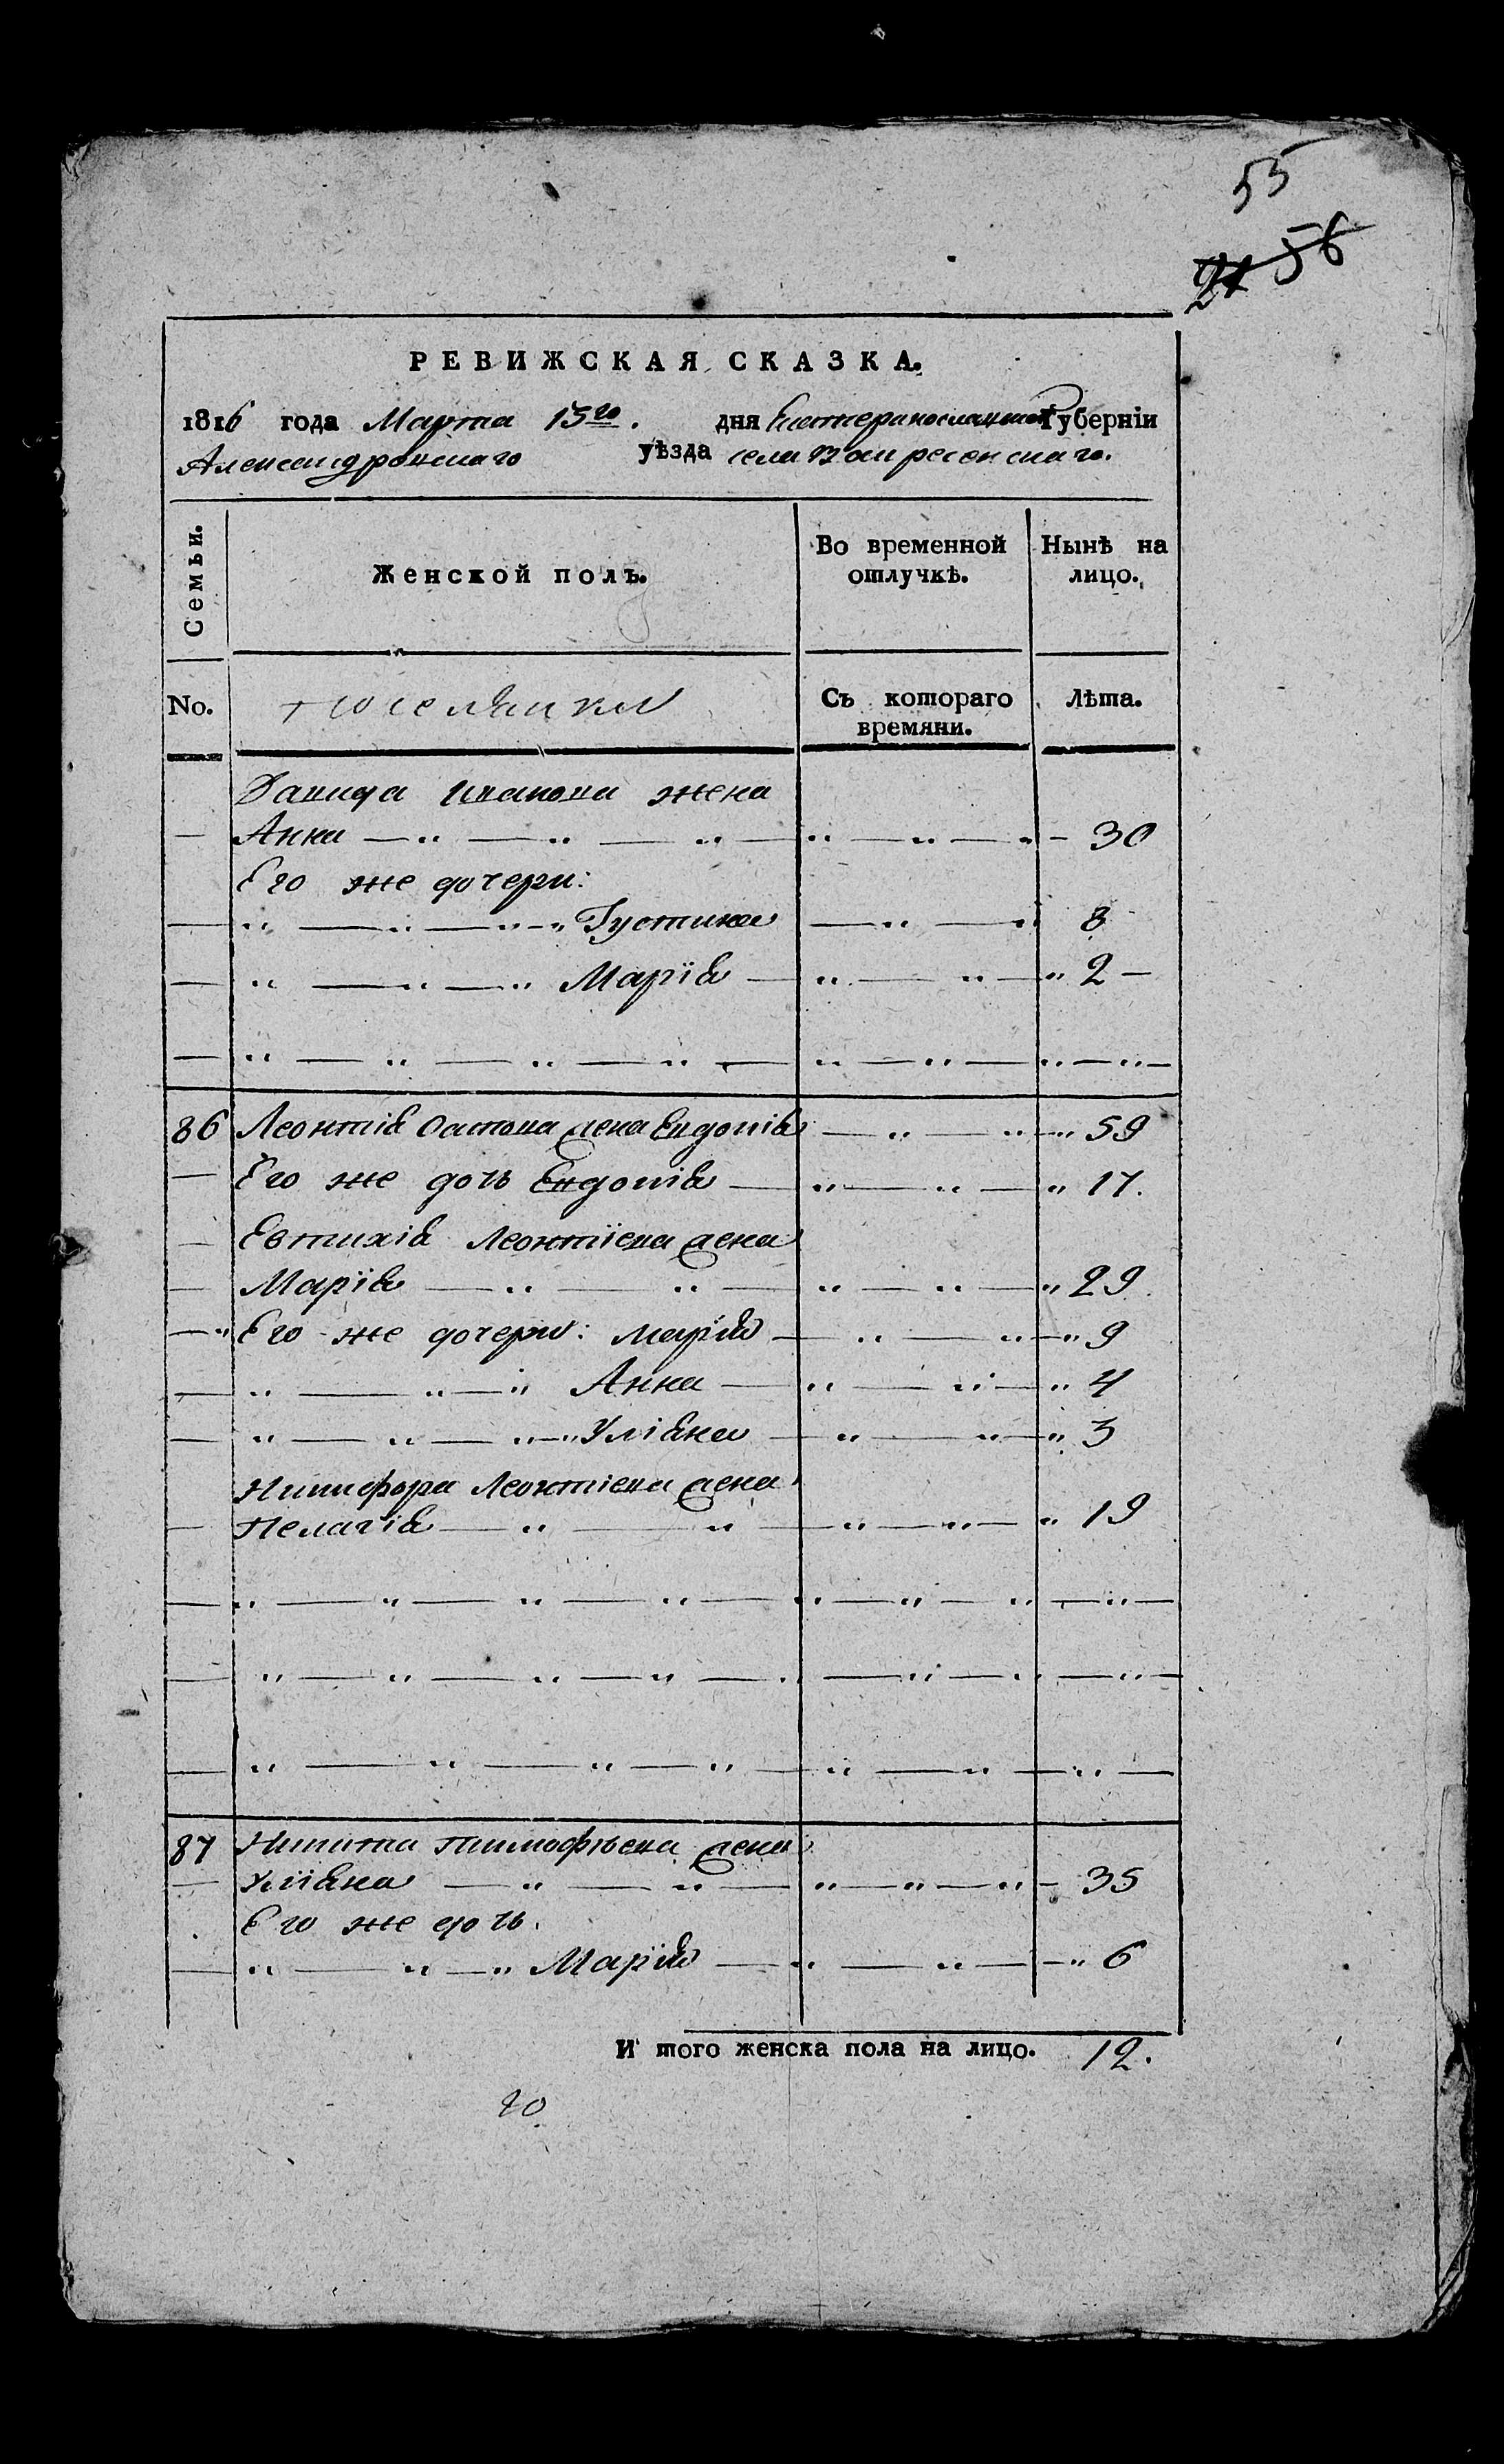 55
21 56
РЕВИЖСКАЯ СКАЗКА.
1816 года Марта 15го. дня Екатеринославской Губернїи
Александровскаго уѣзда села Воскресенскаго.
Семьи.
Женской полъ.
Во временной отлучкѣ.
Нынѣ на лицо.
No.
поселянки
Съ котораго времяни.
Лѣта.
Давида Иванова жена
Анна — „ — „ — „ — „ — „ — „ — 30
Его же дочери:
— „ — „ — „ — „ Густина — „ — „ 8
— „ — „ — „ Марїя — „ — „ — „ 2 —
— „ — „ — „ — „ — „ — „ — „ — „ —
86 Леонтїя Остапа жена Евдокїя — „ — „ — „ 59
— Его же дочь Евдокїя — „ — „ — „ 17.
— Евтихїя Леонтїева жена
— Марїя — „ — „ — „ — „ — „ 29.
— „ Его же дочери: Марїя — „ — „ — „ 9
— „ — „ — „ Анна — „ — „ — „ 4
— „ — „ — „ — „ Улїяна — „ — „ — „ 3
Никифора Леонтїева жена
— Пелагїя — „ — „ — „ — „ — „ 19
— „ — „ — „ — „ — „ — „ — „ — „ —
— „ — „ — „ — „ — „ — „ — „ — „ —
— „ — „ — „ — „ — „ — „ — „ —
87 Никита Тимофѣева жена
— Улїяна — „ — „ — „ — „ — „ — 35
Его же дочь.
— „ — „ — „ Марїя — „ — „ — „ 6
И того женска пола на лицо. 12.
20